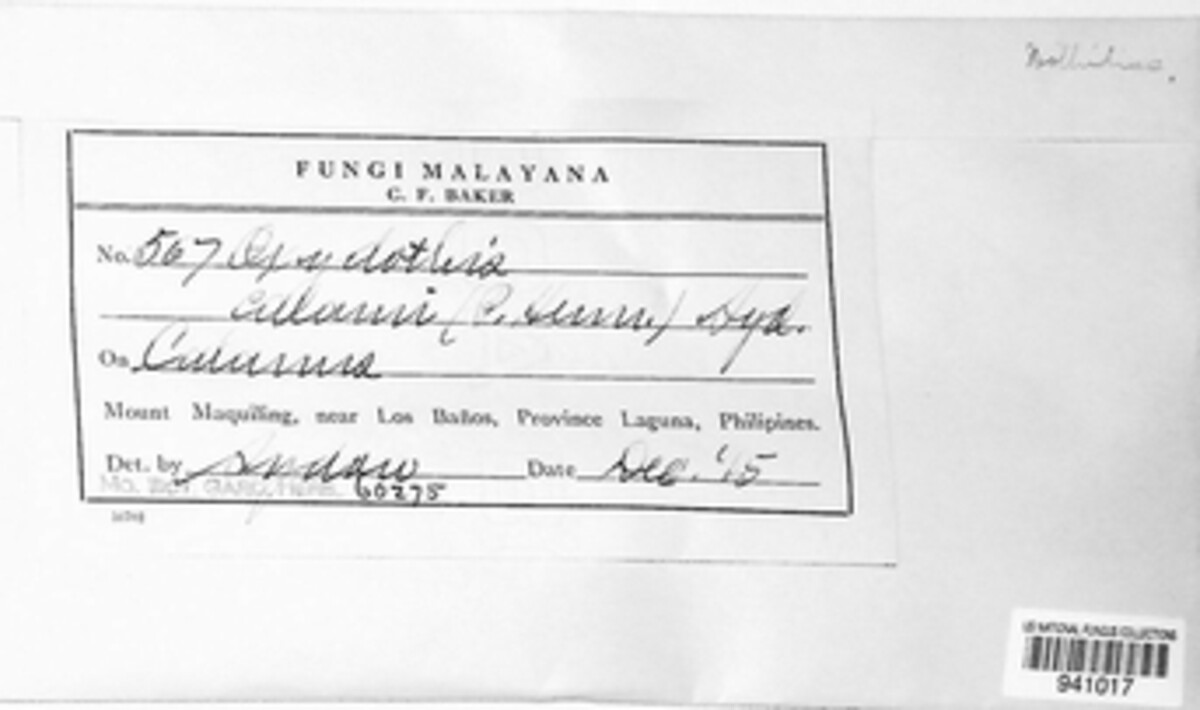 FUNGI MALAYANA
C. F. BAKER
No. 567 Oxydothis
calami (P. Henn.) Syd.
On Calamus
Mount Maquiling, near Los Baños, Province Laguna, Philipines.
Det. by Sydow Date Dec. '15
MO. BOT. GARD. HERB. 60275
US NATIONAL FUNGUS COLLECTIONS
941017